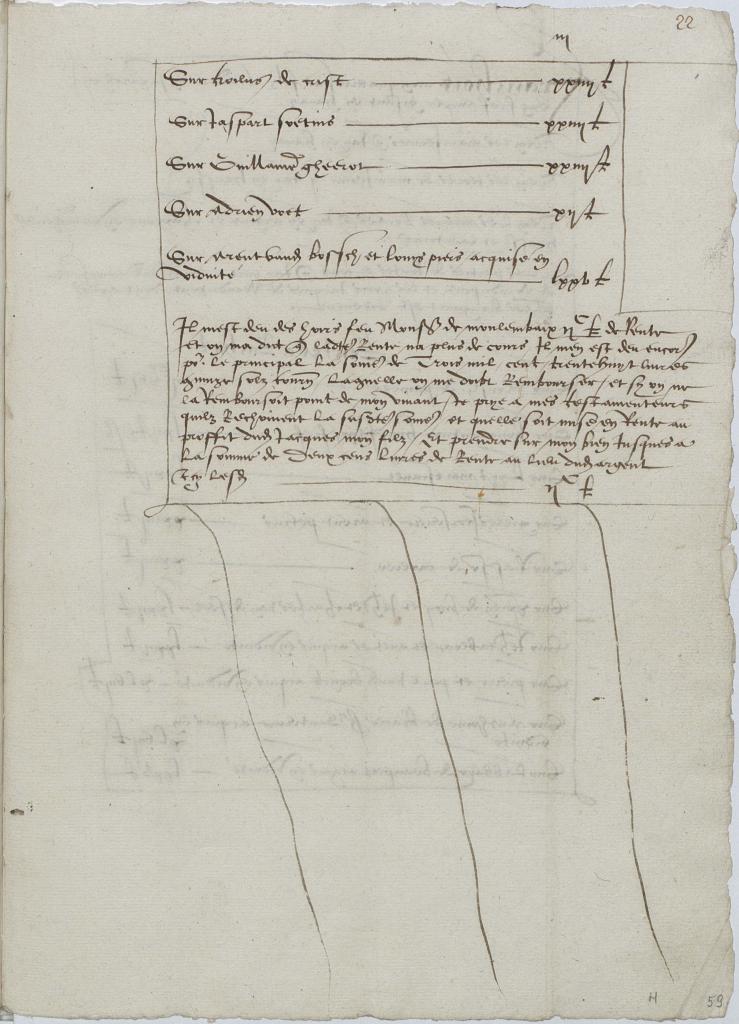 22
III
Sur troilus de crist xxiiij £
Sur Jaspart soetins xxiiij £
Sur Guillame gheerot xxiiij £
Sur Adrien voet xij £
Sur Arent vand bossch et Lowys piers acquise en
viduite lxxv £
Il mest deu des hoirs feu Monsr de moulembaix ijC £ de Rente
Et on ma dict q ladte Rente na plus de cours Il men est deu encor
pr le principal La some de Trois mil cent trentehuyt livres
quinze solz tourn Laquelle on me doibt Rembourser et sy on ne
la Remboursoit point de mon vivant Je prye a mes testamenteurs
quilz Rechoivent La susdte some et quelle soit mise en Rente au
proffit dud Jacques mon filz Et prendre sur mon bien Jusques a
La somme de Deux cens Livres de Rente au lieu dud argent
Icy lesd ijC £
H
59